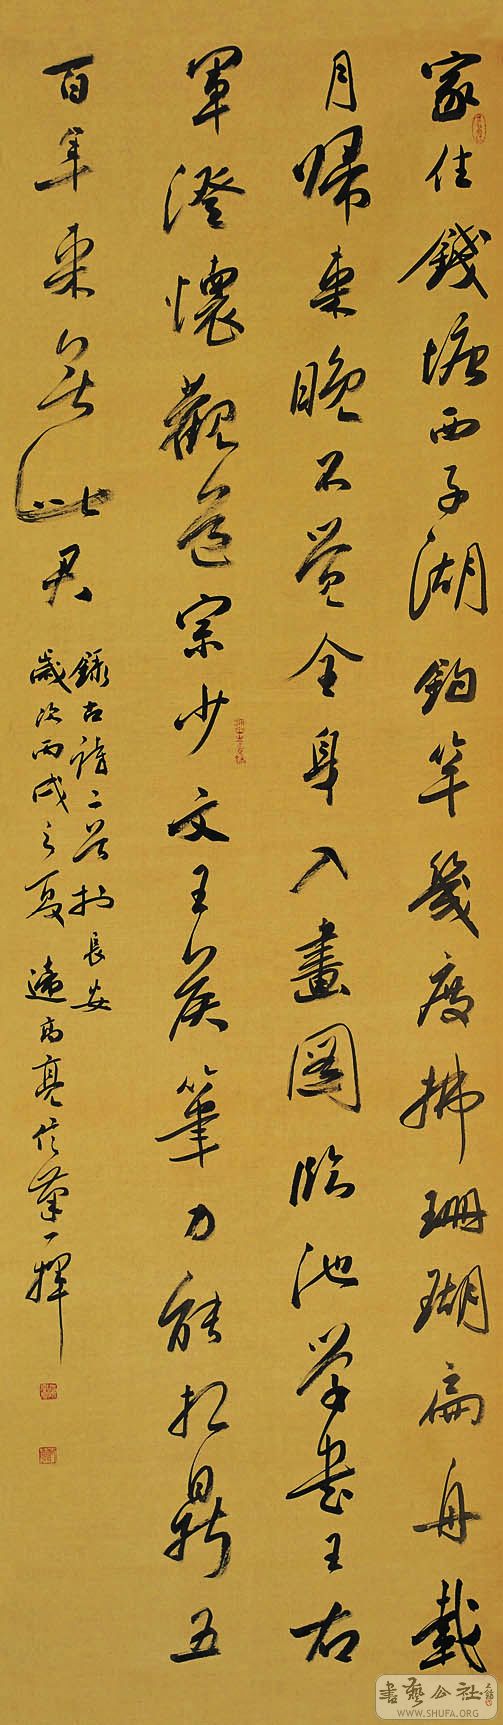 家住錢塘西子湖釣竿幾度拂珊瑚扁舟載
月歸來晚不覺全身入畫圖臨池學書王右
軍澄懷觀道宗少文王侯筆力能扛鼎五
百年來無此君
錄古詩二首於長安
歲次丙戌之夏 遠高亮信筆一揮
書藝公社
WWW.SHUFA.ORG